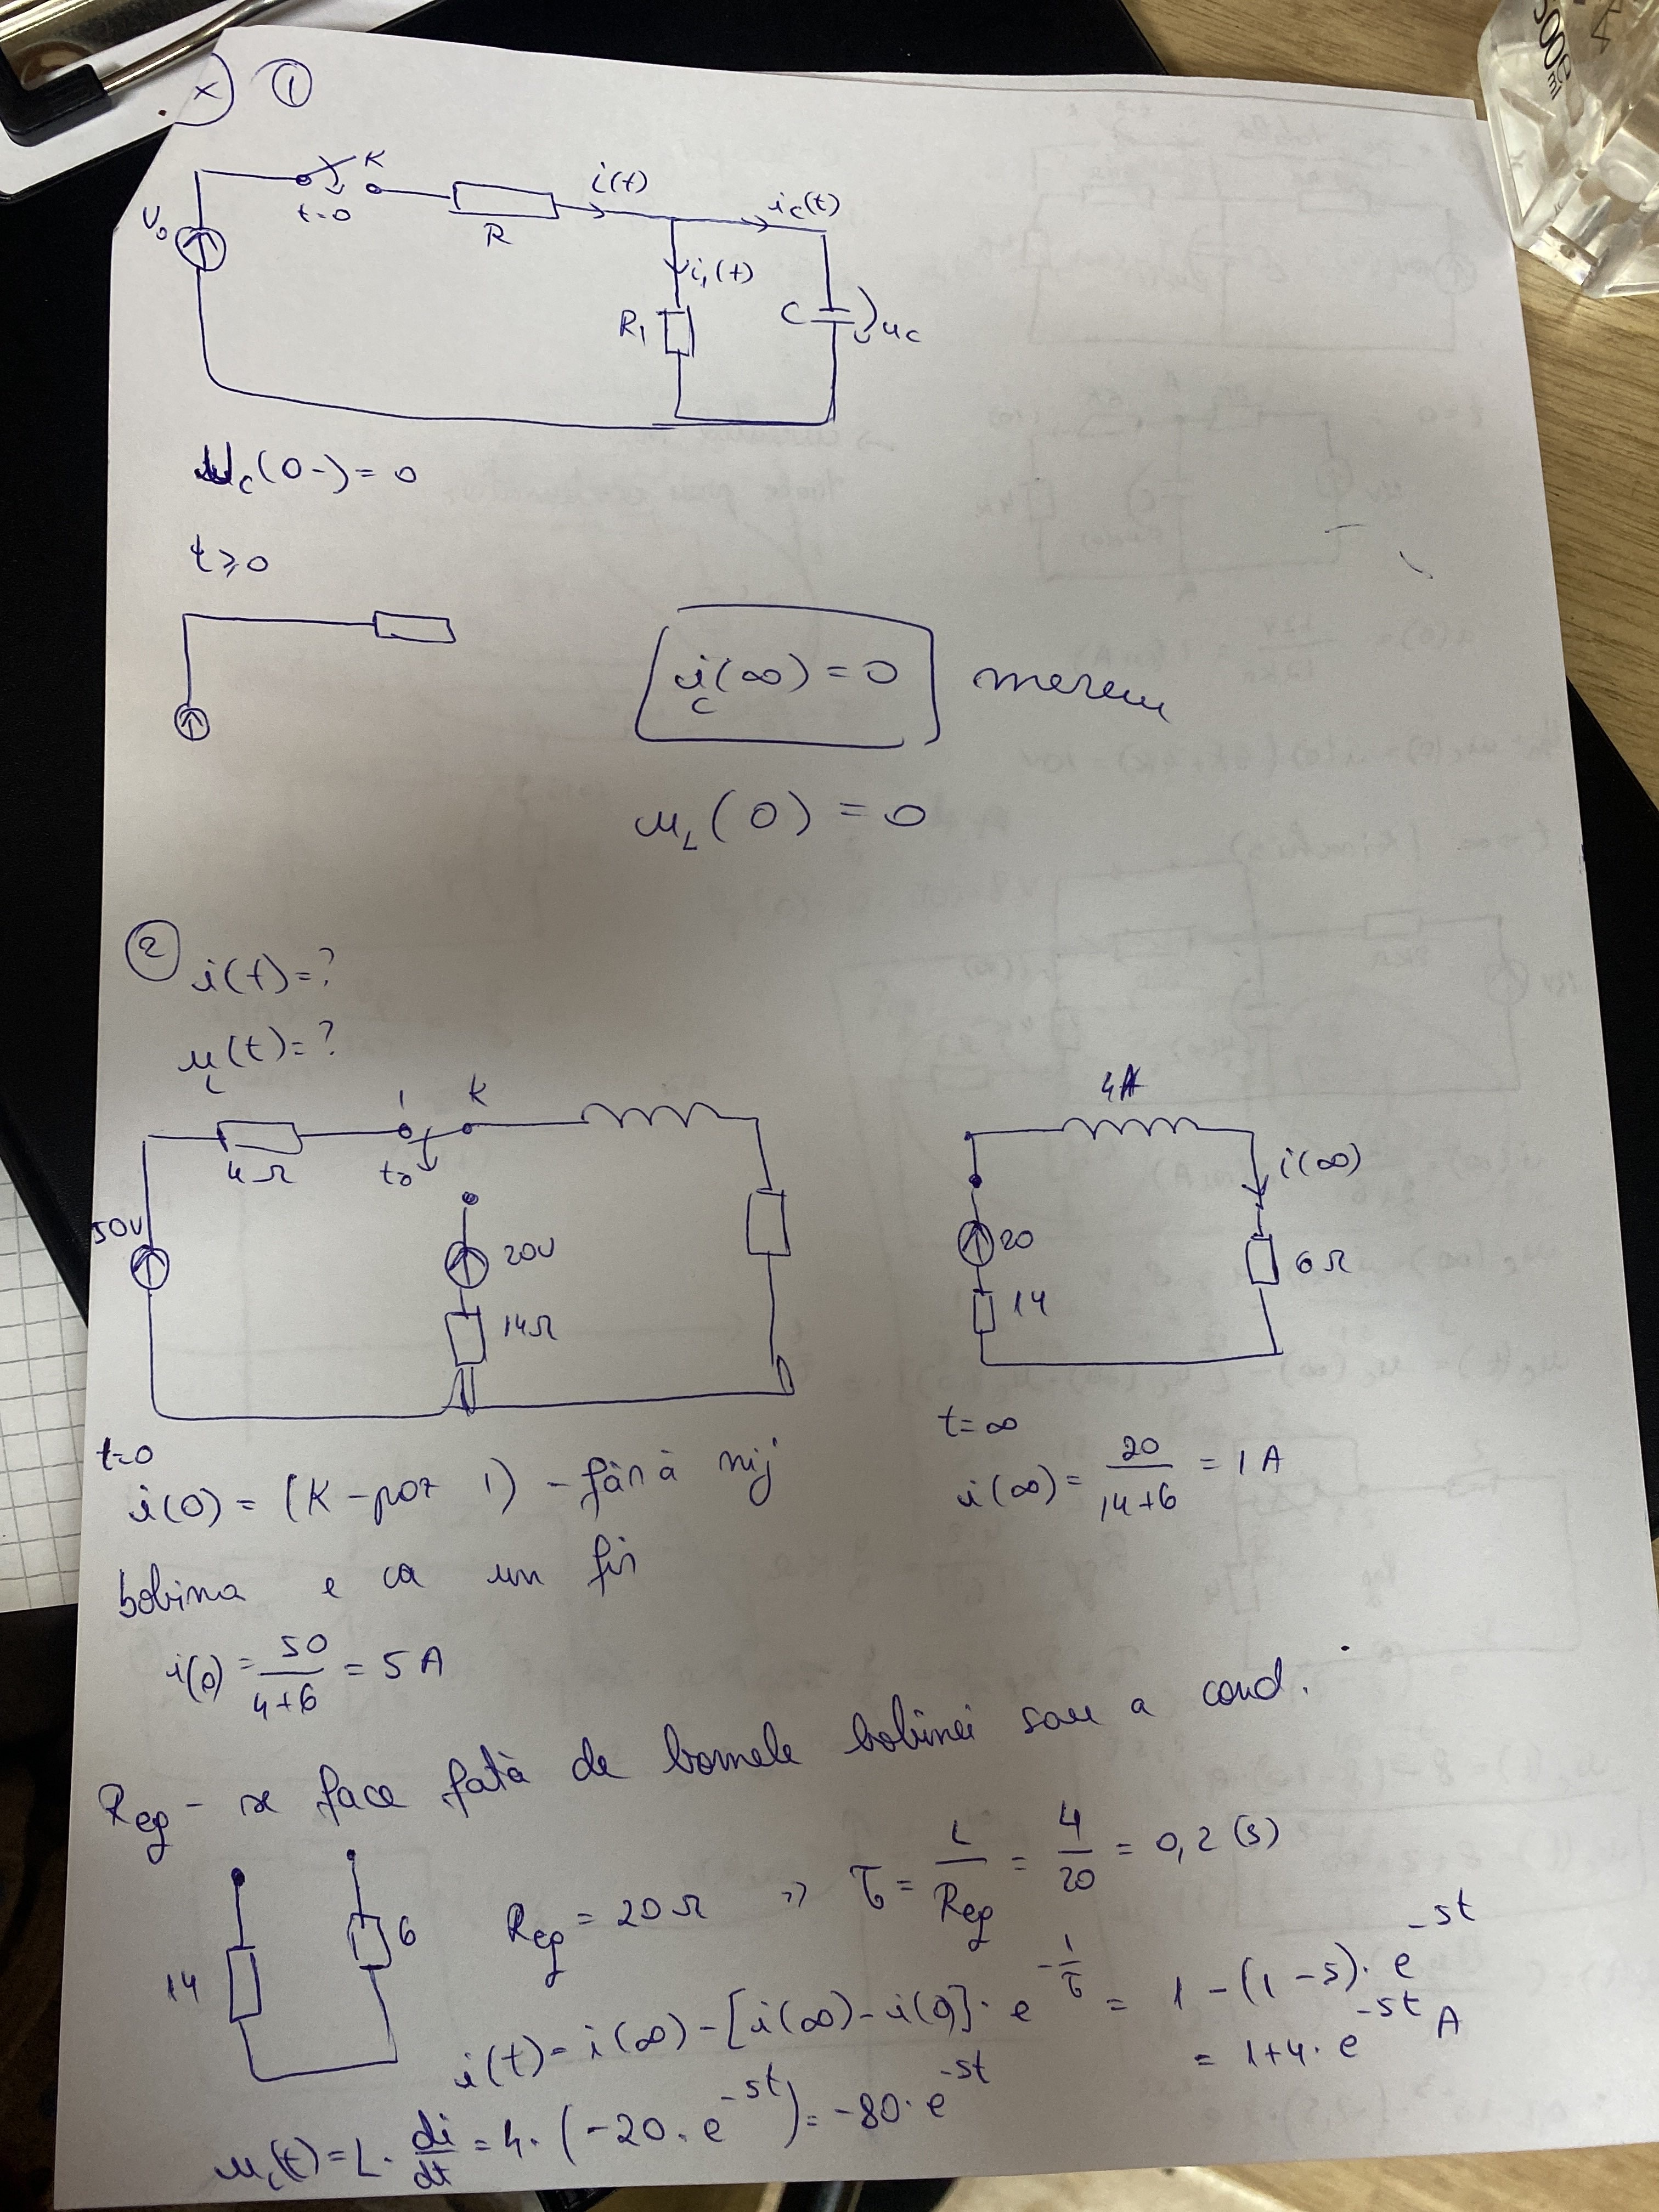 x) ①
K
t=0
U₀
R
i(t)
i_c(t)
i₁(t)
R₁
C
u_c
u_c(0-)=0
t≥0
i_c(∞)=0 mereu
u_L(0)=0
② i(t)=?
u_L(t)=?
1 K
4Ω
t₀
50V
20V
14Ω
4H
i(∞)
20
14
6Ω
t=0
i(0) = (K-poz 1) - fără nij
bobina e ca un fir
i(0) = 50/(4+6) = 5 A
t=∞
i(∞) = 20/(14+6) = 1 A
Reg - se face fată de bornele bobinei sau a cond.
14
6
Reg = 20Ω => τ = L/Reg = 4/20 = 0,2 (s)
i(t)= i(∞) - [i(∞) - i(0)]· e^(-1/τ) = 1 - (1-5)· e^(-5t)
= 1+4· e^(-5t) A
u_L(t) = L· di/dt = 4· (-20· e^(-5t)) = -80· e^(-5t)
500
ml